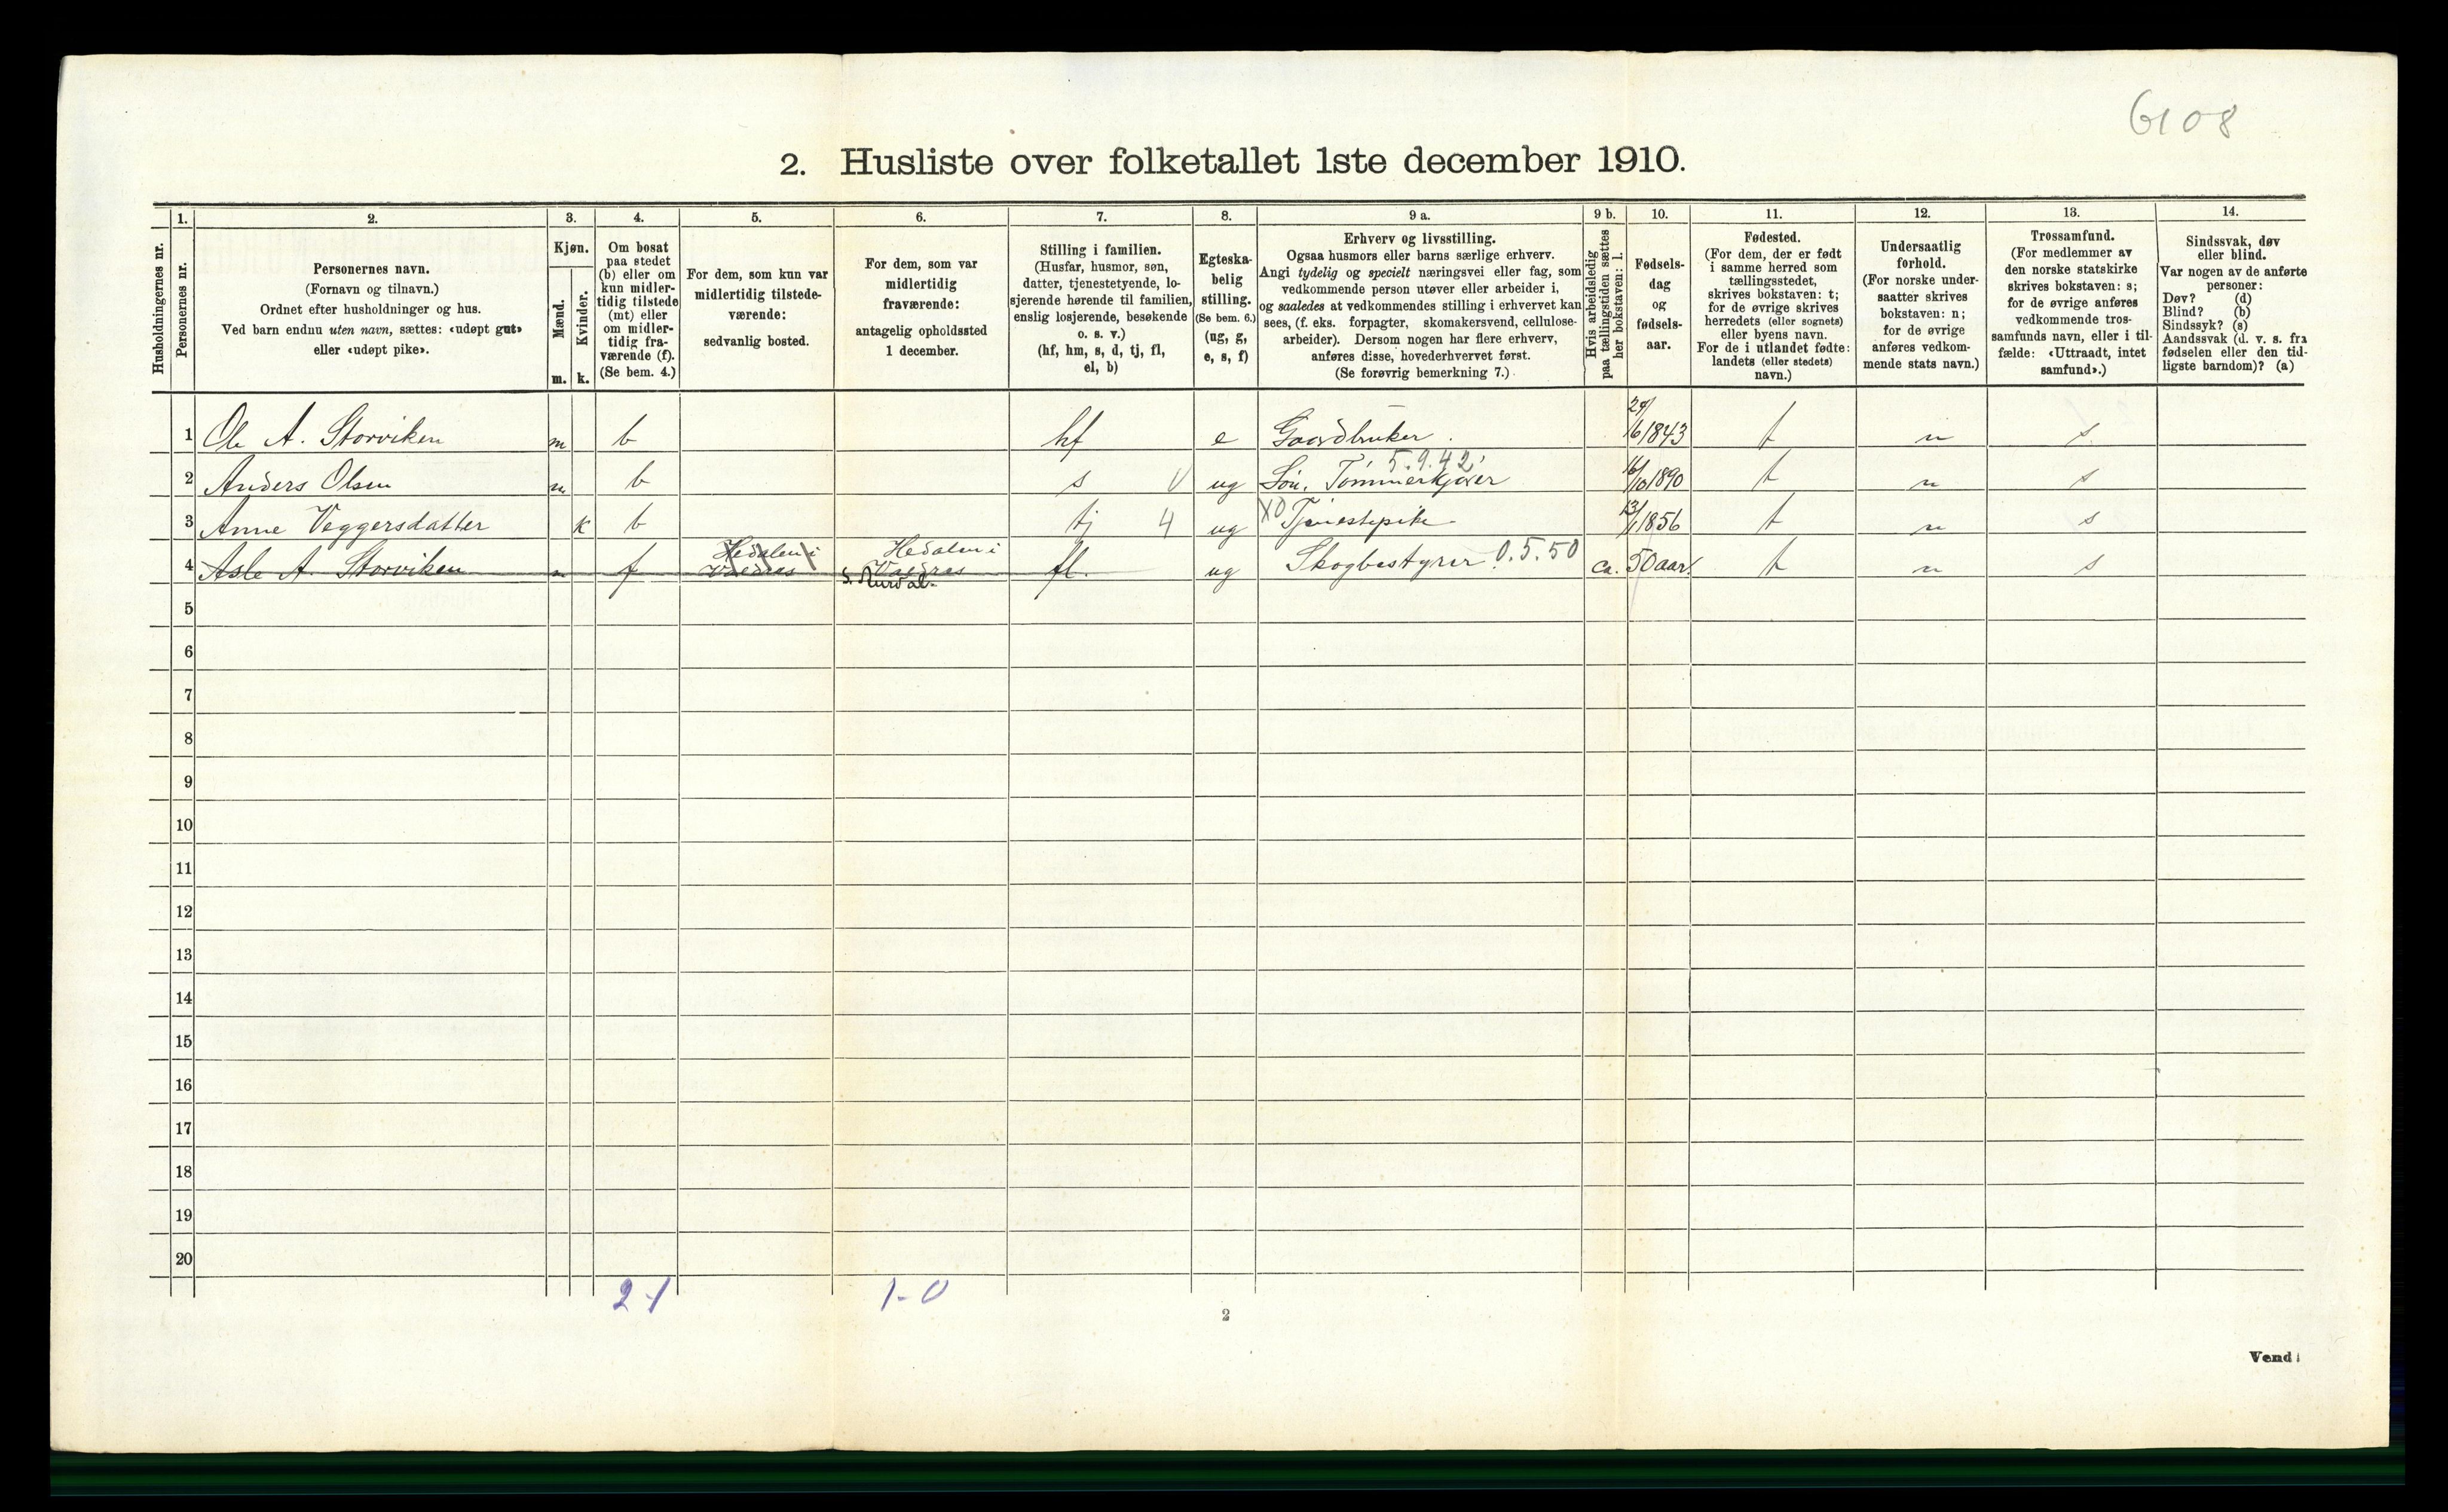 6108
2. Husliste over folketallet 1ste december 1910.
1. 2. 3. 4. 5. 6. 7. 8. 9 a. 9 b. 10. 11. 12. 13. 14.
Husholdningernes nr.
Personernes nr.
Personernes navn.
(Fornavn og tilnavn.)
Ordnet efter husholdninger og hus.
Ved barn endnu uten navn, sættes: «udøpt gut»
eller «udøpt pike».
Kjøn.
Mænd.
Kvinder.
m. k.
Om bosat
paa stedet
(b) eller om
kun midler-
tidig tilstede
(mt) eller
om midler-
tidig fra-
værende (f).
(Se bem. 4.)
For dem, som kun var
midlertidig tilstede-
værende:
sedvanlig bosted.
For dem, som var
midlertidig
fraværende:
antagelig opholdssted
1 december.
Stilling i familien.
(Husfar, husmor, søn,
datter, tjenestetyende, lo-
sjerende hørende til familien,
enslig losjerende, besøkende
o. s. v.)
(hf, hm, s, d, tj, fl,
el, b)
Egteska-
belig
stilling.
(Se bem. 6.)
(ug, g,
e, s, f)
Erhverv og livsstilling.
Ogsaa husmors eller barns særlige erhverv.
Angi tydelig og specielt næringsvei eller fag, som
vedkommende person utøver eller arbeider i,
og saaledes at vedkommendes stilling i erhvervet kan
sees, (f. eks. forpagter, skomakersvend, cellulose-
arbeider). Dersom nogen har flere erhverv,
anføres disse, hovederhvervet først.
(Se forøvrig bemerkning 7.)
Hvis arbeidsledig
paa tællingstiden sættes
her bokstaven: l.
Fødsels-
dag
og
fødsels-
aar.
Fødested.
(For dem, der er født
i samme herred som
tællingsstedet,
skrives bokstaven: t;
for de øvrige skrives
herredets (eller sognets)
eller byens navn.
For de i utlandet fødte:
landets (eller stedets)
navn.)
Undersaatlig
forhold.
(For norske under-
saatter skrives
bokstaven: n;
for de øvrige
anføres vedkom-
mende stats navn.)
Trossamfund.
(For medlemmer av
den norske statskirke
skrives bokstaven: s;
for de øvrige anføres
vedkommende tros-
samfunds navn, eller i til-
fælde: «Uttraadt, intet
samfund».)
Sindssvak, døv
eller blind.
Var nogen av de anførte
personer:
Døv? (d)
Blind? (b)
Sindssyk? (s)
Aandssvak (d. v. s. fra
fødselen eller den tid-
ligste barndom)? (a)
1 Ole A. Storviken m b hf e Gaardbruker. 29/6 1843 t n s
5.9.42
2 Anders Olsen m b s V ug Søn, Tømmerkjører 16/10 1890 t n s
3 Anne Veggersdatter k b tj 4 ug X0 Tjenestepike 13/1 1856 t n s
4 Asle A. Storviken m f Hedalen i Valdres Hedalen i Valdres S. Aurdal fl. ug Skogbestyrer 0.5.50 ca. 50 aar t n s
5
6
7
8
9
10
11
12
13
14
15
16
17
18
19
20
2-1 1-0
2
Vend!